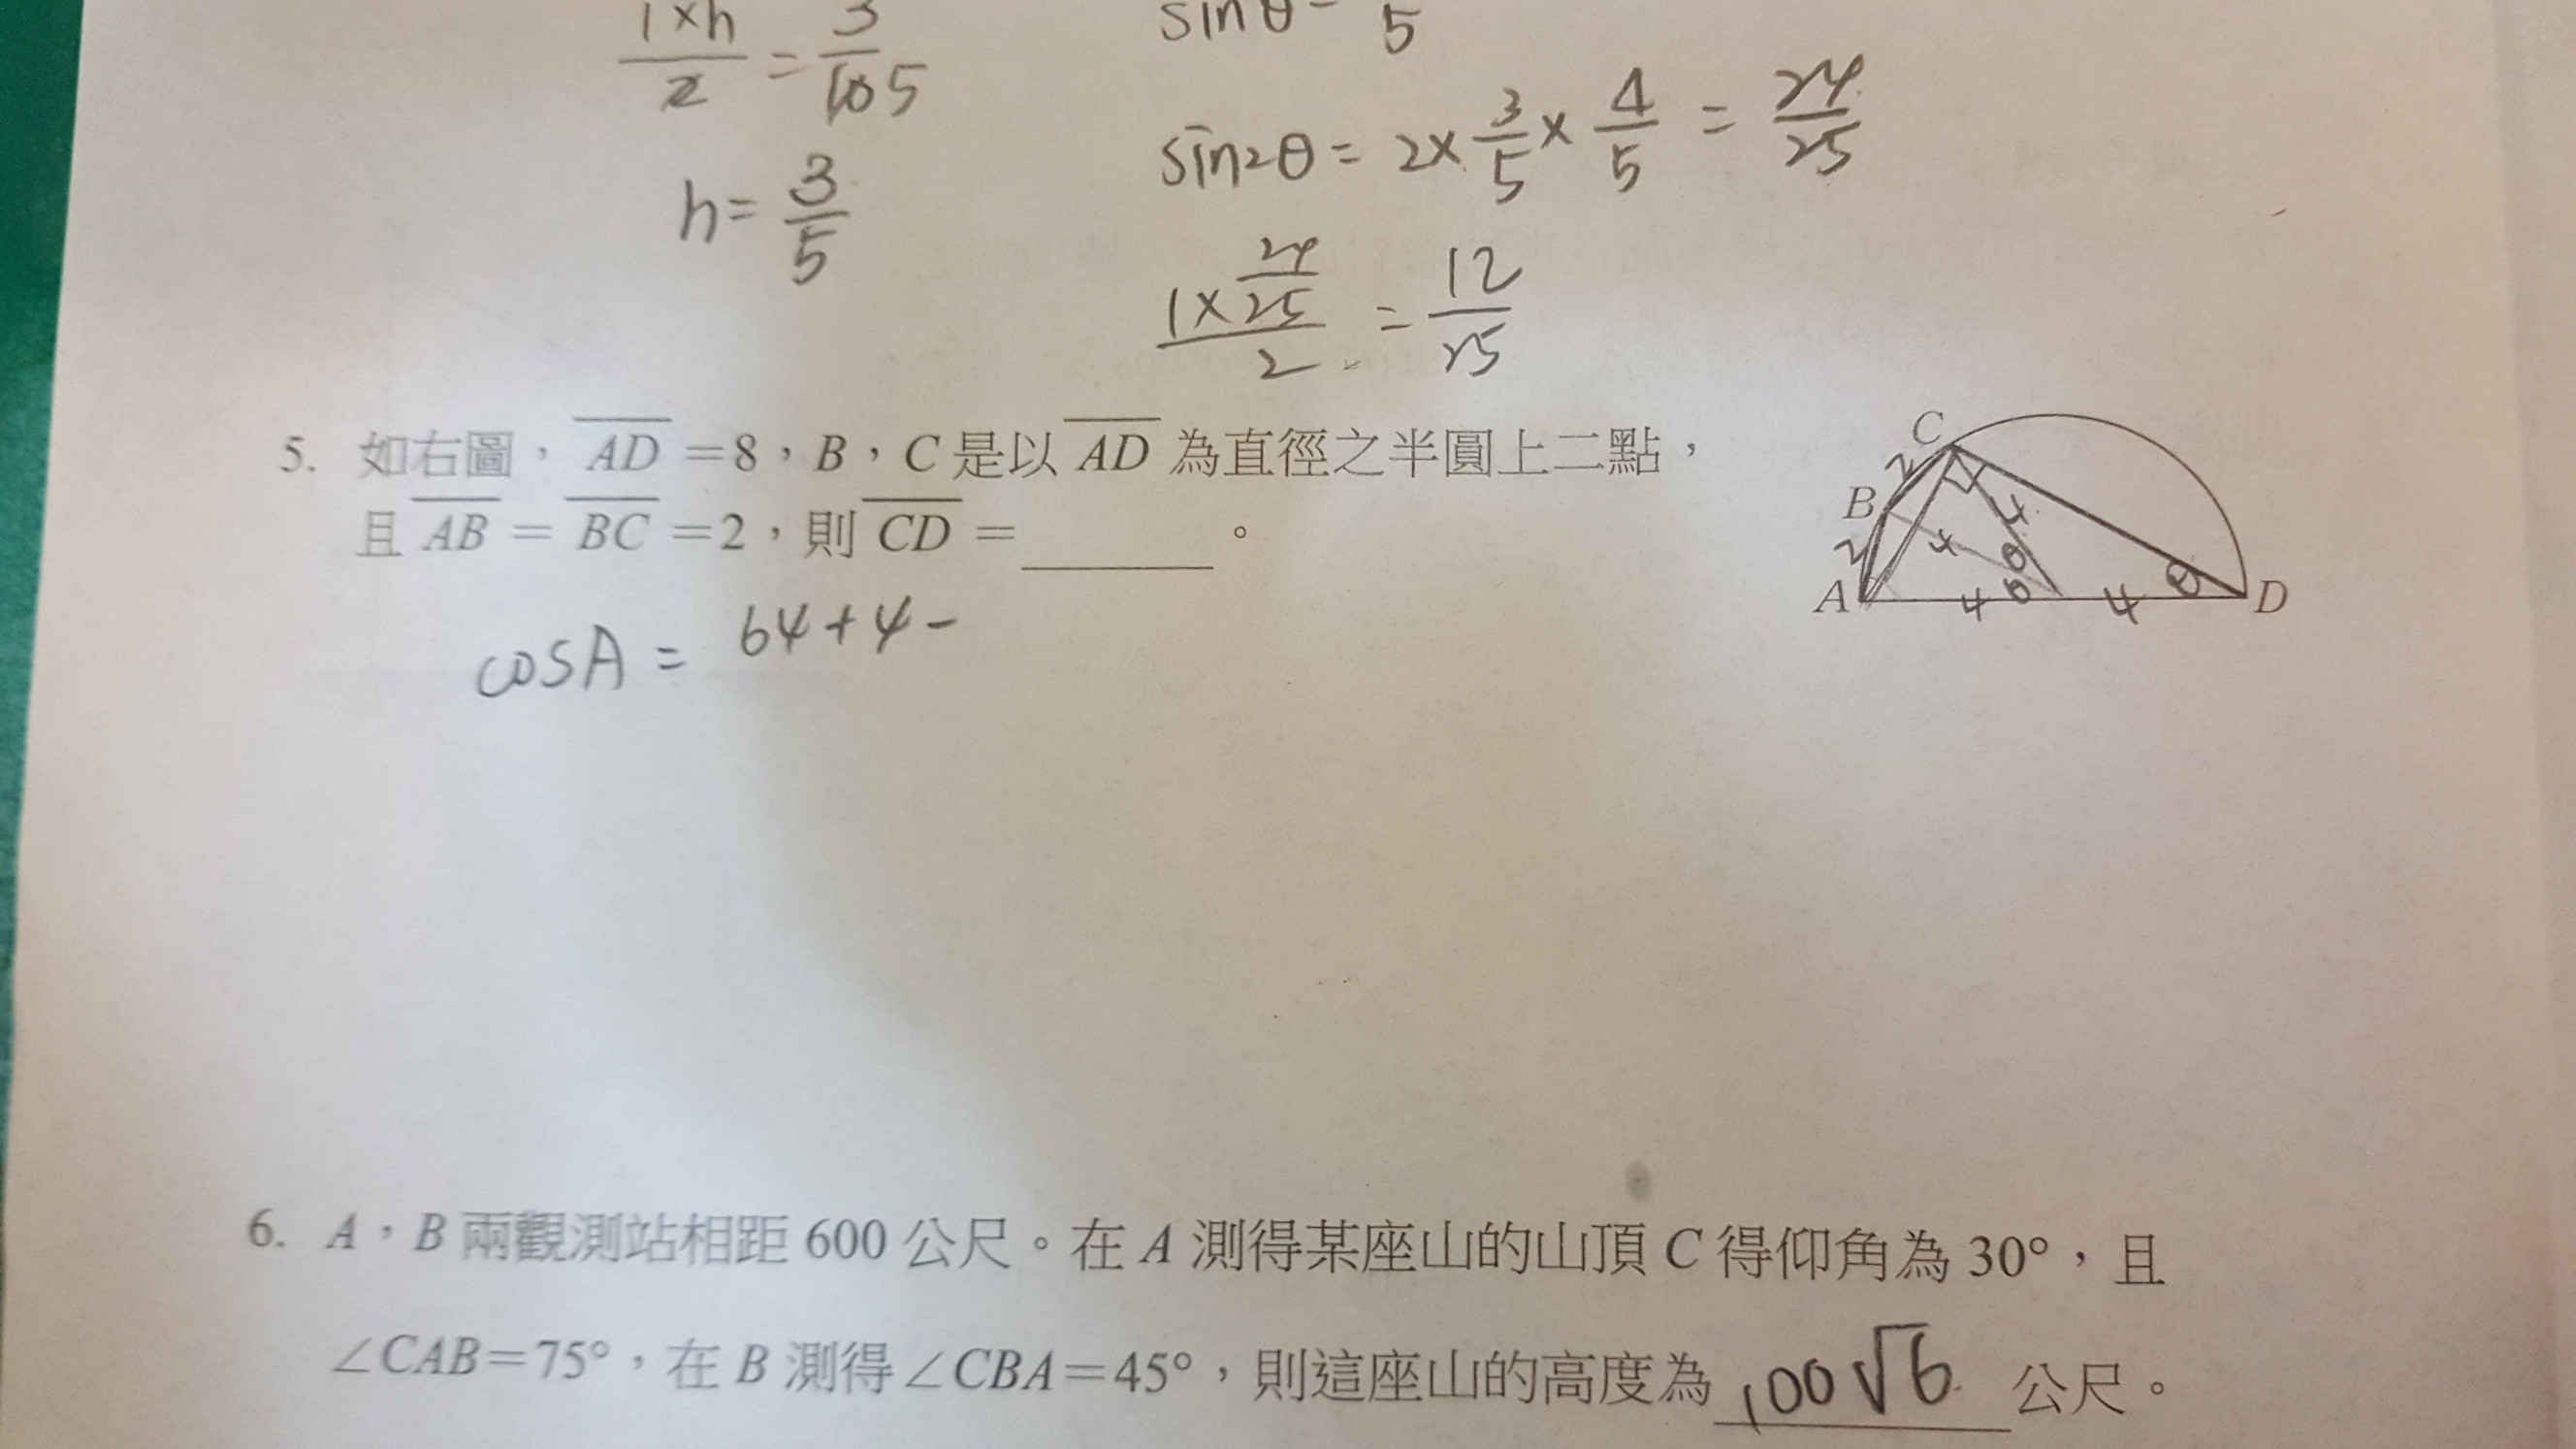 1×h/2 = 3/10 5
sinθ= /5
sin2θ= 2×3/5×4/5 = 24/25
h= 3/5
1×24/25/2 = 12/25
5. 如右圖，AD=8，B，C是以AD為直徑之半圓上二點，
且AB=BC=2，則CD=______。
cosA = 64+4-
C
2
B
4
4
2
θ
θ
θ
A
4
4
D
6. A，B兩觀測站相距600公尺。在A測得某座山的山頂C得仰角為30°，且
∠CAB=75°，在B測得∠CBA=45°，則這座山的高度為100√6公尺。